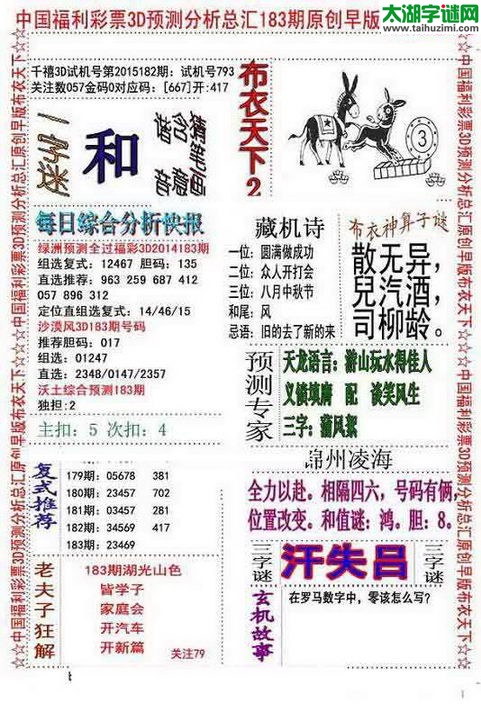 中国福利彩票3D预测分析总汇183期原创早版
太湖字谜网
www.taihuzimi.com
☆☆中国福利彩票3D预测分析总汇原创早版布衣天下☆☆
千禧3D试机号第2015182期：试机号793
关注数057金码0对应码：[667]开:417
和
布衣天下2
③
每日综合分析快报
绿洲预测全过福彩3D2014183期
组选复式：12467 胆码：135
直选推荐：963 259 687 412
057 896 312
定位直组选复式：14/46/15
沙漠风3D183期号码
推荐胆码：017
组选：01247
直选：2348/0147/2357
沃土综合预测183期
独担:2
主扣：5 次扣：4
藏机诗
一位：圆满做成功
二位：众人开打会
三位：八月中秋节
和尾：风
忌语：旧的去了新的来
布衣神算子谜
散无异，
兒汽酒，
司柳龄。
预测专家
天龙语言：游山玩水得佳人
义愤填膺 配 谈笑风生
三字：蒲风絮
复式推荐
179期：05678 381
180期：23457 702
181期：03457 281
182期：34569 417
183期：23469
锦州凌海
全力以赴。相隔四六，号码有俩，
位置改变。和值谜：鸿。胆：8。
老夫子狂解
183期湖光山色
皆学子
家庭会
开汽车
开新篇
关注79
三字谜
汗失吕
三字谜
玄机故事
在罗马数字中，零该怎么写？
☆☆中国福利彩票3D预测分析总汇原创早版布衣天下☆☆